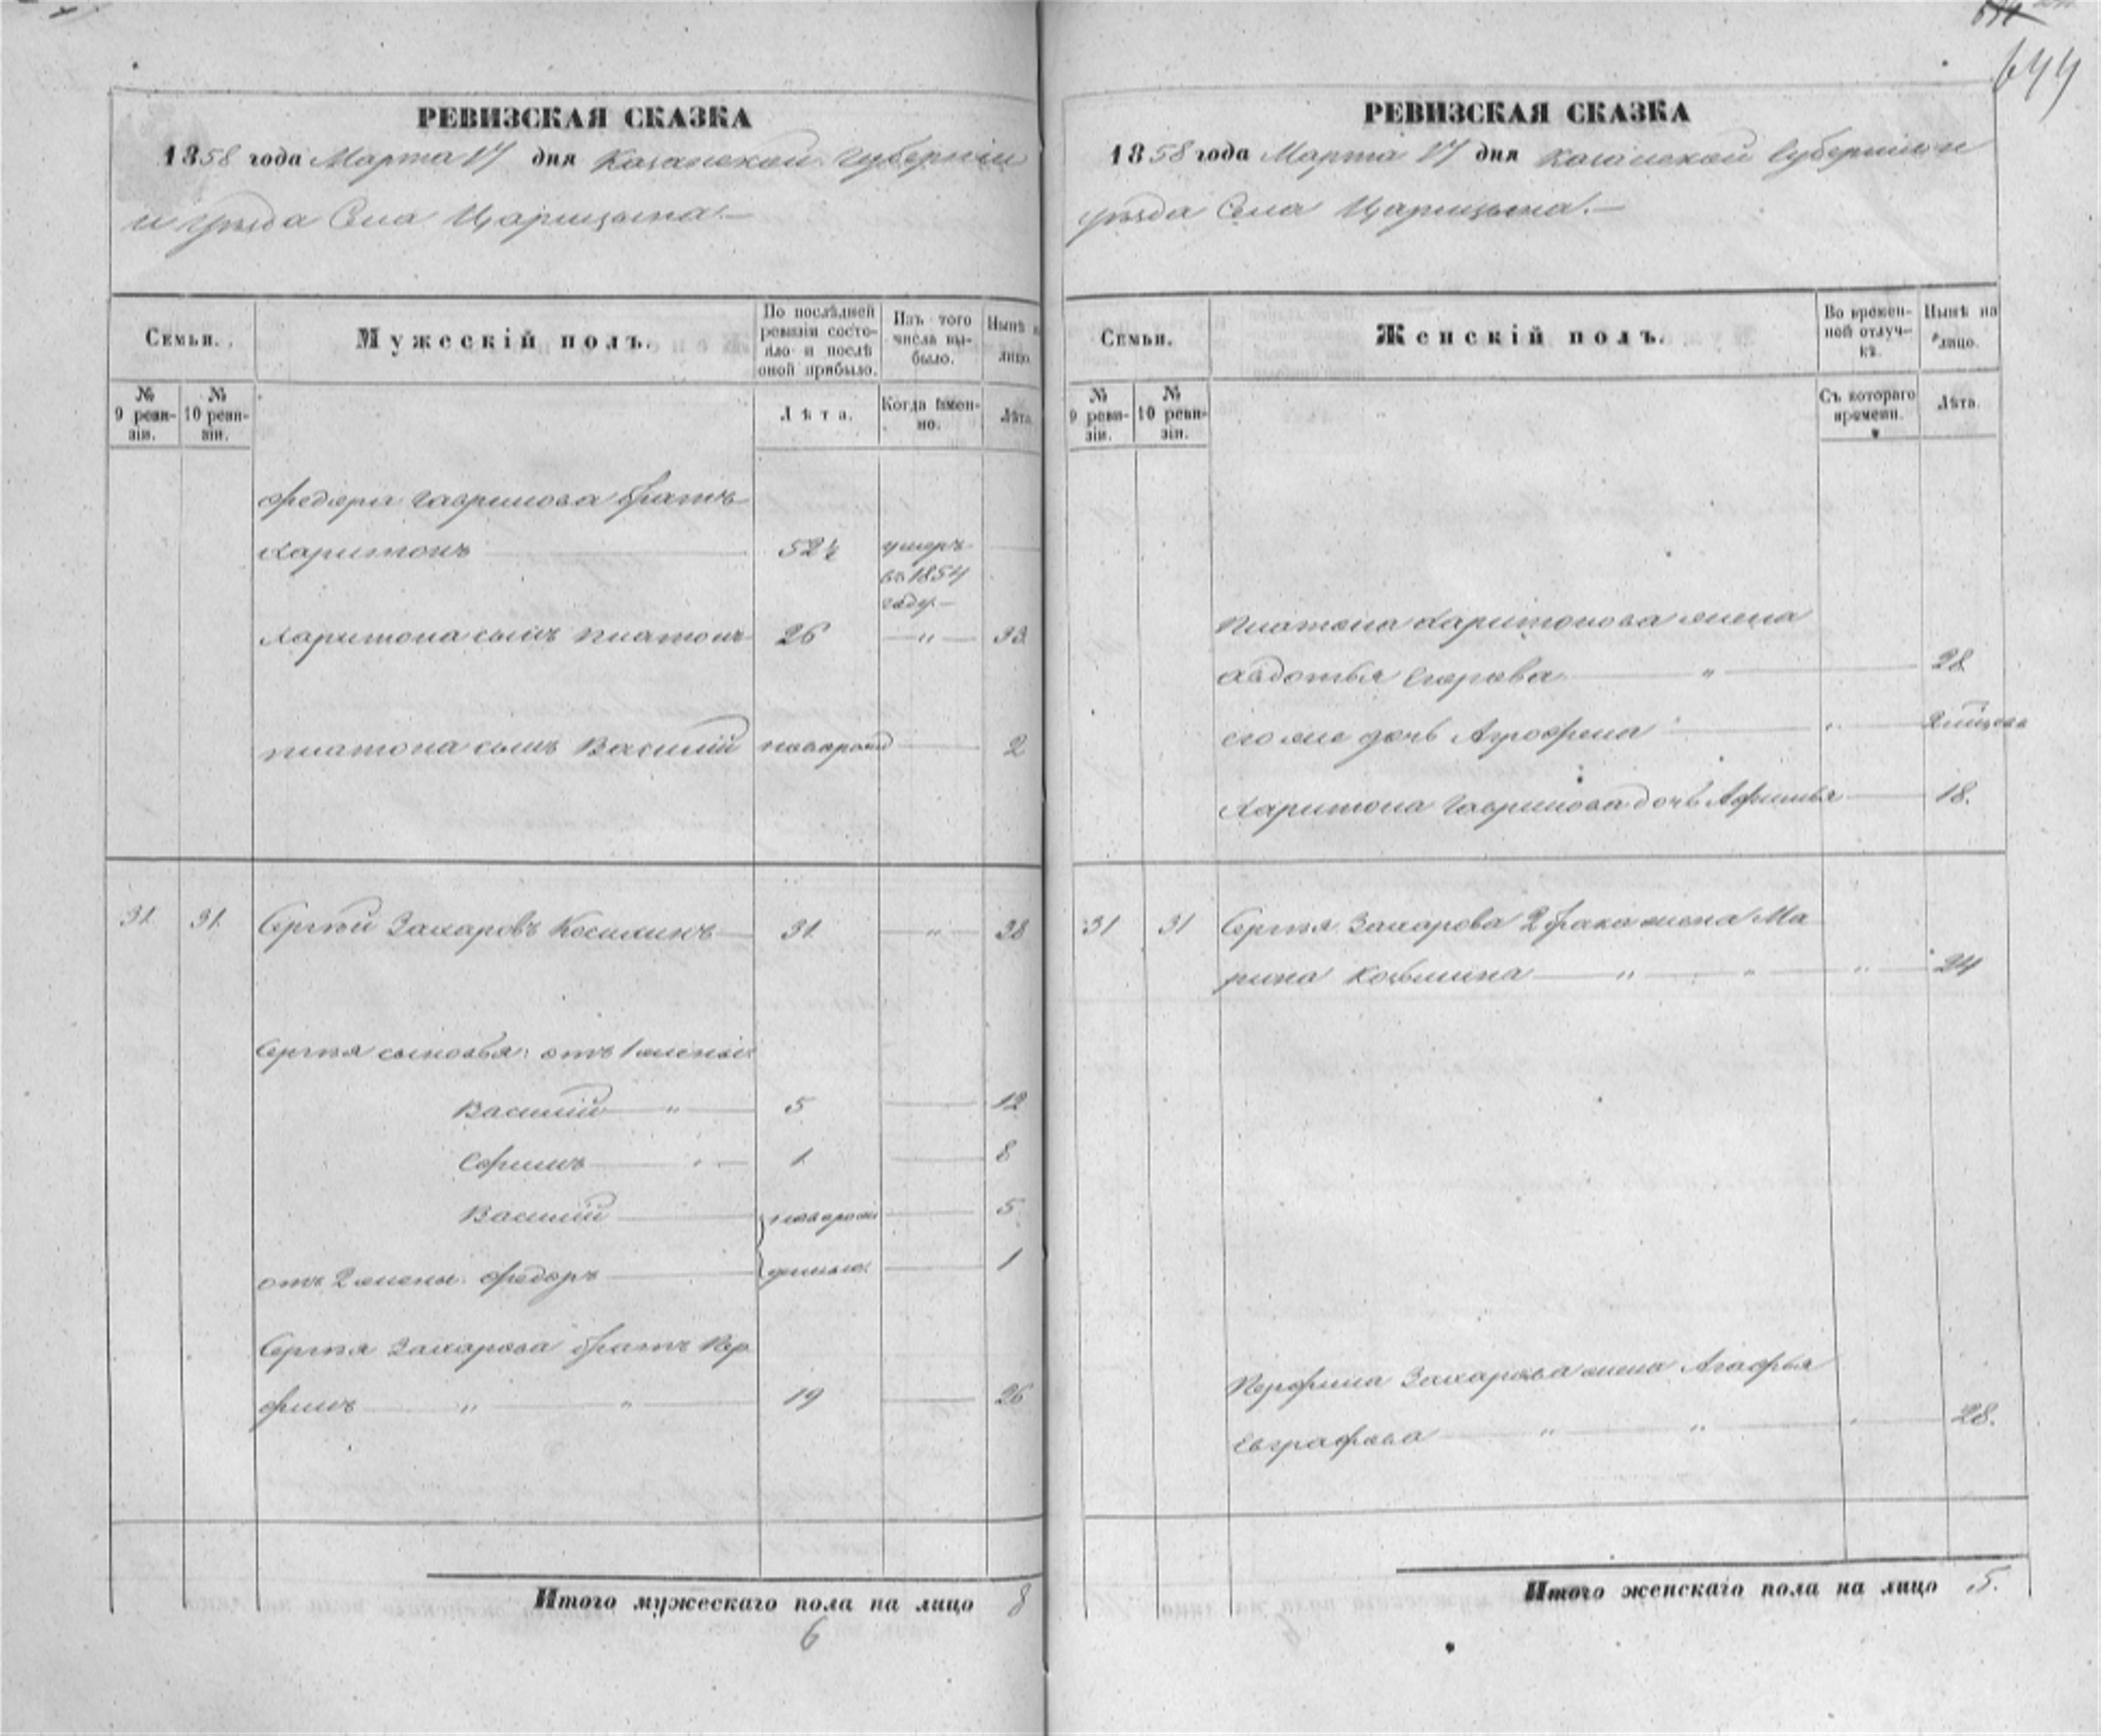 644
РЕВИЗСКАЯ СКАЗКА
1858 года Марта 17 дня Казанской Губерніи
и уѣзда Села Царицына.—
Семьи.
Мужескій полъ.
По послѣдней ревизіи состояло и послѣ оной прибыло.
Изъ того числа выбыло.
Нынѣ на лицо.
№ 9 ревизіи.
№ 10 ревизіи.
Лѣта.
Когда имянно.
Лѣта.
Федора Гаврилова братъ
Харитонъ 52½ умеръ
въ 1854
году.—
Харитона сынъ Платонъ 26 — " — 33
Платона сынъ Василій новорожд 2
31 31 Сергѣй Захаровъ Косихинъ 31 — " — 38
Сергѣя сыновья: отъ 1 жены:
Василій " 5 12
Ефимъ 1 8
Василій новорож 5
отъ 2 жены: Федоръ денные 1
Сергѣя Захарова братъ Пор
филъ " " 19 26
Итого мужескаго пола на лицо 8
6
РЕВИЗСКАЯ СКАЗКА
1858 года Марта 17 дня Казанской Губерніи и
уѣзда Села Царицына.—
Семьи.
Женскій полъ.
Во временной отлучкѣ.
Нынѣ на лицо.
№ 9 ревизіи.
№ 10 ревизіи.
Съ котораго времени.
Лѣта.
Платона Харитонова жена
Авдотья Егорова " 28
его же дочь Агрофена
Харитона Гаврилова дочь Афимья 18.
31 31 Сергѣя Захарова 2 брака жена Ма
рина Козьмина " " " 24
Порфила Захарова жена Агафья
Евграфова " " 28.
Итого женскаго пола на лицо 5.